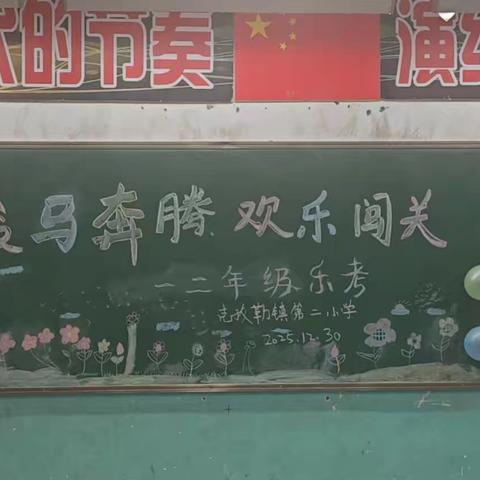 的节奏 演
骏马奔腾 欢乐闯关
一二年级乐考
克孜勒镇第二小学
2025.12.30